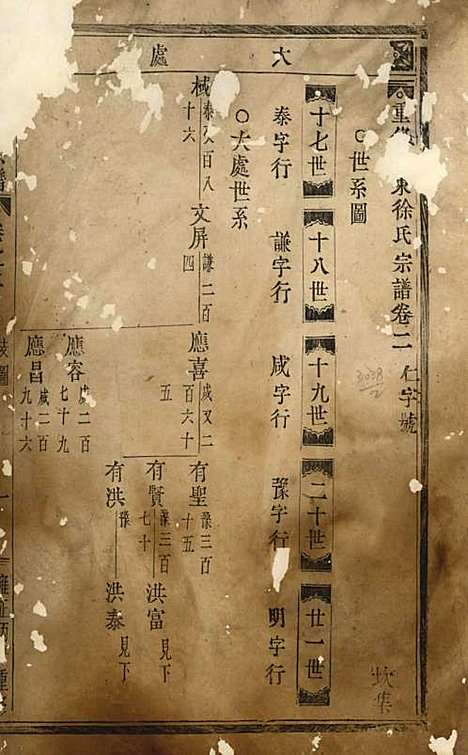 重修 東徐氏宗譜卷二 仁字號
世系圖
十七世 十八世 十九世 二十世 廿一世
泰字行 謙字行 咸字行 豫字行 明字行
大處世系
大 處
棫 泰又百八十六 文屏 謙二百四 應喜 咸又二百六十五 有聖 豫三百十五
有賢 豫三百七十 洪富 見下
有洪 豫 洪泰 見下
應容 咸二百七十九
應昌 咸二百九十六
3038